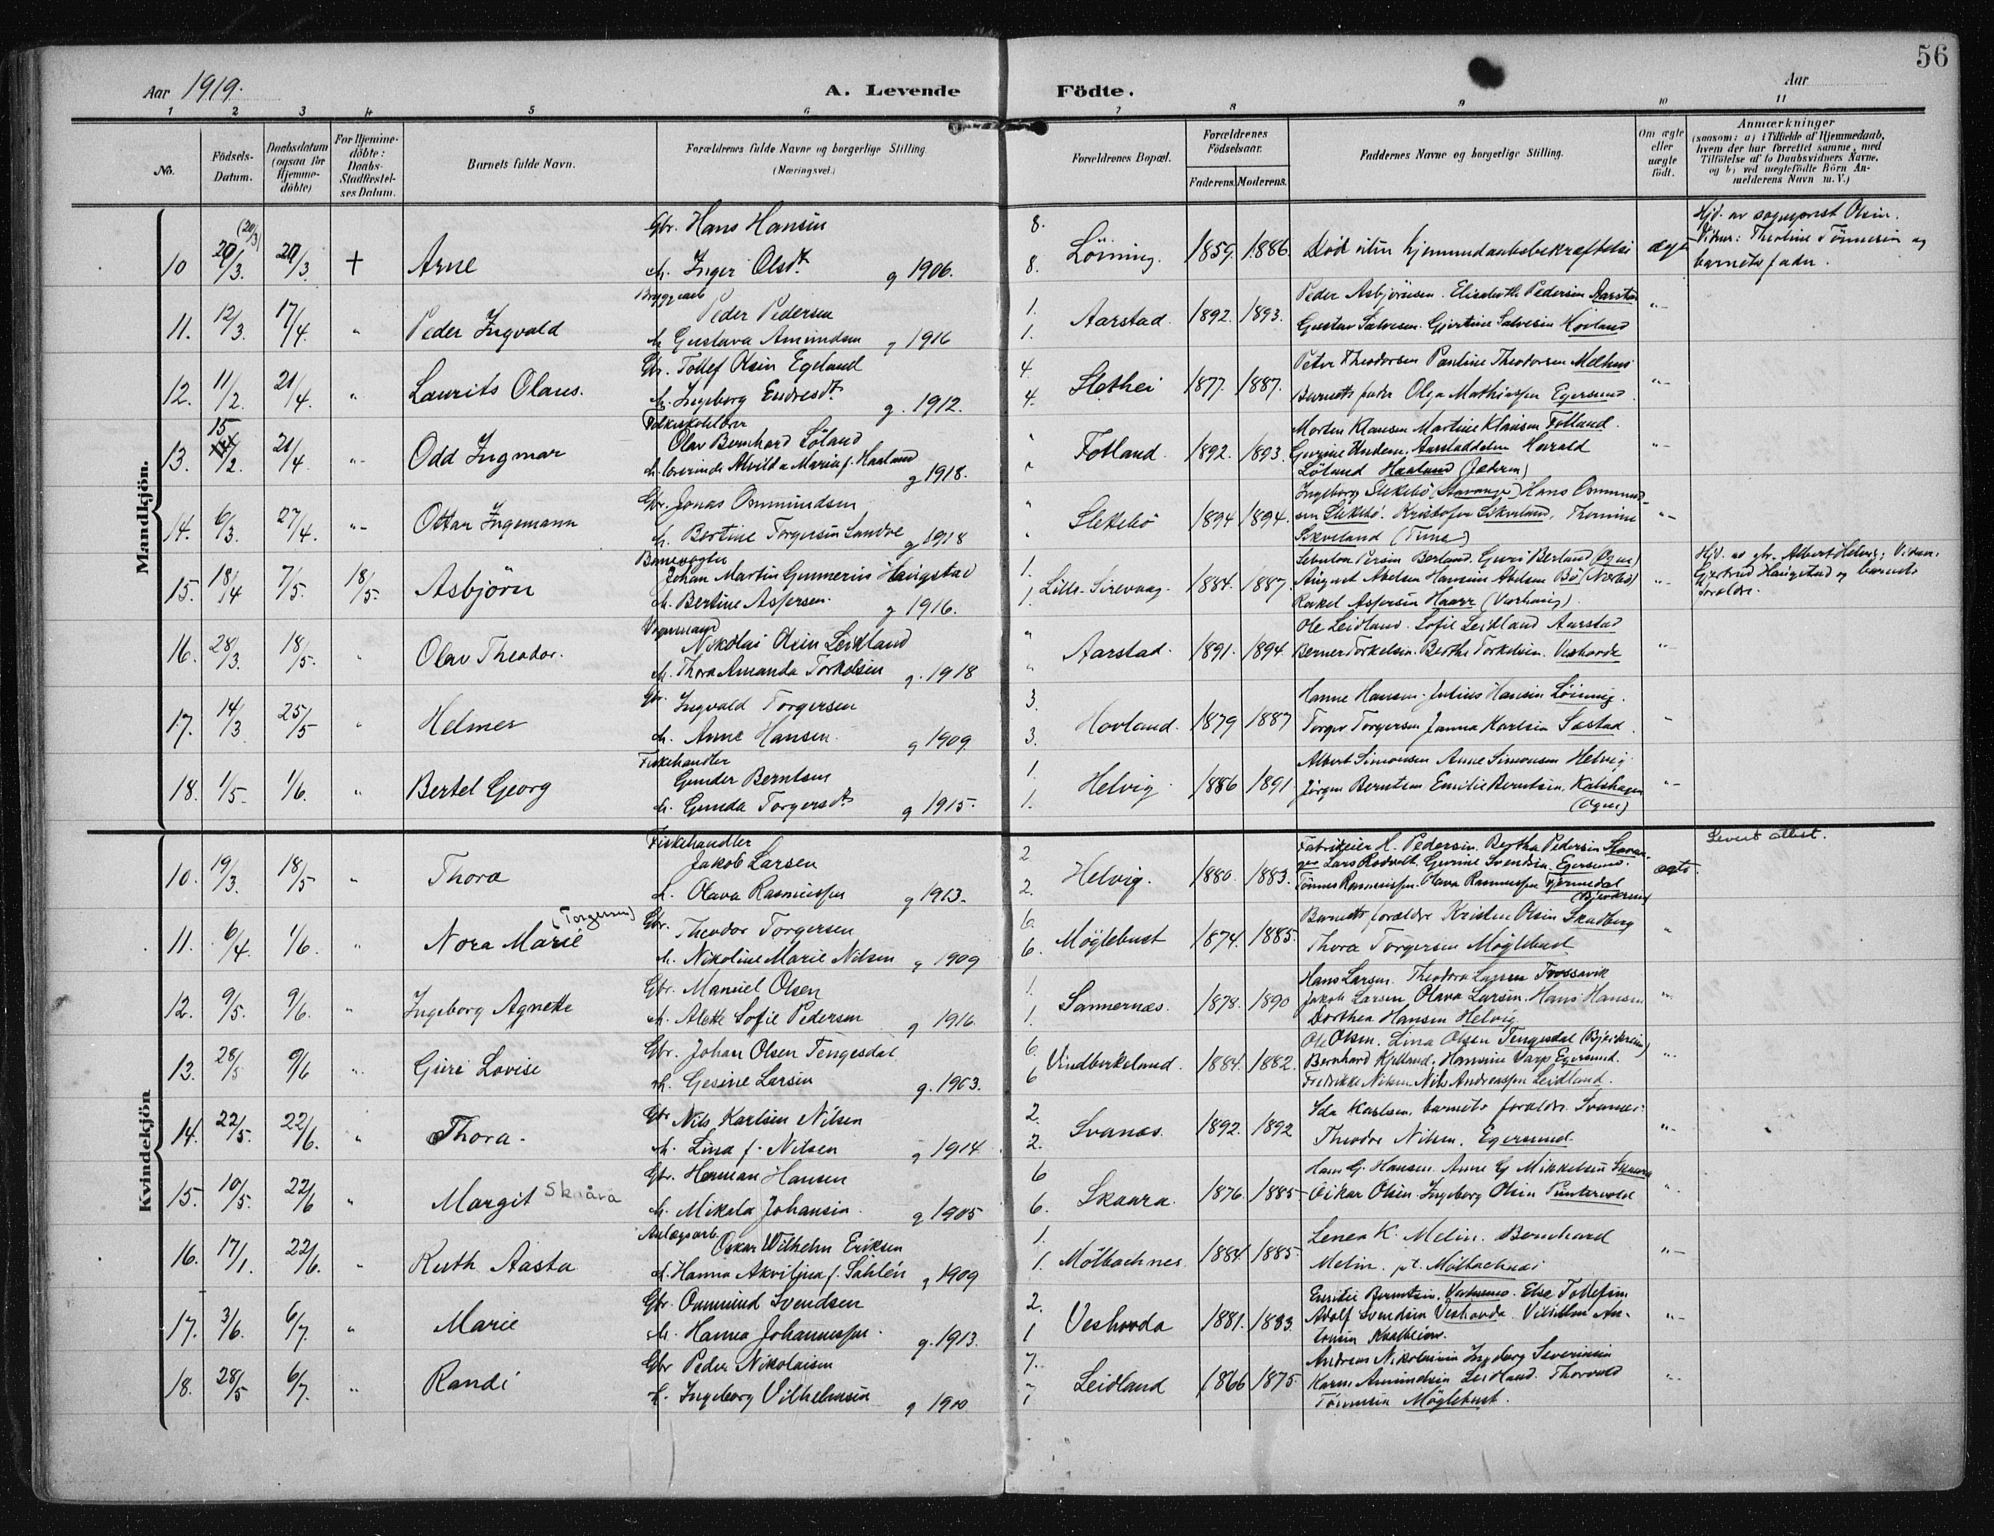 56
Aar 1919.
A. Levende Födte.
Aar
1 2 3 4 5 6 7 8 9 10 11
No.
Födsels-Datum.
Daabsdatum (ogsaa for Hjemmedöbte)
For Hjemmedöbte: Daabs-Stadfæstelses Datum.
Barnets fulde Navn.
Forældrenes fulde Navne og borgerlige Stilling (Næringsvei.)
Forældrenes Bopæl.
Forældrenes Födselsaar.
Faderens. Moderens.
Faddernes Navne og borgerlige Stilling.
Om ægte eller uægte födt.
Anmærkninger
(saasom: a) i Tilfælde af Hjemmedaab, hvem der har forrettet samme, med Tilföielse af to Daabsvidners Navne, og b) ved uægtefödte Börn Anmelderens Navn m. V.)
Mandkjön.
10 20/3 (20/3) 20/3 + Arne
Gbr. Hans Hansen
h. Inger Olsdt. g 1906.
8. 8. Löining. 1859. 1886. Död uten hjemmedaabsbekræftelse ægte
Hjd. av sogneprest Olsen. Vidner: Theoline Tönnesen og barnets fader.
11. 12/3 17/4 " Peder Ingvald
Bryggearb. Peder Pedersen
h. Gustava Amundsen g 1916
1. 1. Aarstad. 1892. 1893.
Peder Asbjörnsen. Elisabeth Pedersen Aarstad
Gustav Salvesen. Gjertine Salvesen Hovland "-
12. 11/2 21/4 " Laurits Olaus.
Gbr. Tollef Olsen Egeland
h. Ingeborg Endresdt. g. 1912.
4. 4. Slethei 1877. 1887.
Peter Theodorsen Pauline Theodorsen Melhus
Barnets fader Olga Mathiassen Egersund. "-
13. 15/2 21/4 "- Odd Ingmar
Folkeskolelærer Olav Bernhard Löland
h. Alvilda Maria f. Haaland g 1918.
" " Fotland. 1892. 1893.
Morten Klausen Martine Klausen Fotland.
Aarstaddalen Harald
Löland Haaland (Jæderen) "-
14. 6/3 27/4. "- Ottar Ingemann
Gbr. Jonas Ommundsen
h. Bertine Torgersen Sandve g 1918
" " Slettebö 1894 1894.
Ingeborg Slettebö (Stavanger) Hans Ommundsen Slettebö. Kristofer Skeiland, Thomine
Skeiland (Time) "-
15. 18/4 7/5. 18/5. Asbjörn
Banevogter Johan Martin Gunnerius Haugstad
h. Bertine Aspersen. g 1916.
1. 1. Lille-Sirevaag. 1884. 1887.
Berland. Guri Berland (Ogna)
August Abelsen Hansine Abelsen Bö (Nærbö)
Rakel Aspersen Haarr (Varhaug). "-
Hjd. av gbr. Albert Helvig; Vidner: Gjertrud Haugstad og barnets forældre.
16. 28/3. 18/5. " Olav Theodor.
Vognmand Nikolai Olsen Leidland
h. Thora Amanda Torkelsen g. 1918
" " Aarstad. 1891. 1894
Ole Leidland. Sofie Leidland Aarstad
Berner Torkelsen. Berthe Torkelsen. Veshovde "-
17. 14/3 25/5 " Helmer
Gbr. Ingvald Torgersen
h. Anne Hansen. g 1909.
3. 3. Hovland. 1879 1887
Hanne Hansen. Julius Hansen Löining.
Torger Torgersen Janna Karlsen Sæstad. "
18. 1/5. 1/6. " Bertel Georg
Fiskehandler Gunder Berntsen
h. Gunda Torgersdt. g 1915.
1. 1. Helvig. 1886 1891
Albert Simonsen Anne Simonsen Helvig.
Jörgen Berntsen Emilie Berntsen, Kalshagen (Ogna) "-
Kvindekjön
10. 19/3. 18/5 " Thora
Fiskehandler Jakob Larsen
h. Olava Rasmussen g 1913.
2 2. Helvig. 1880. 1883.
Fabrikeier H. Pedersen. Bertha Pedersen Stavanger Lars Rodvelt. Gurine Svendsen. Egersund.
Tönnes Rasmussen. Olava Rasmussen Gjermedal (Bjerkreim) ægte.
Levert attest.
11. 6/4 1/6. " Nora Marie (Torgersen)
Gbr. Theodor Torgersen
h. Nikoline Marie Nilsen g 1909
6. 6. Möglebust 1874. 1885.
Barnets forældre Kristen Olsen Skadberg
Thora Torgersen Möglebust "
12. 9/5. 9/6. " Ingeborg Agnethe
Gbr. Manuel Olsen
h. Alette Sofie Pedersen g 1916.
1. 1. Sannernæs. 1878. 1890
Hans Larsen. Theodora Larsen Trossavik
Jakob Larsen Olava Larsen. Hans Hansen
Dorthea Hansen Helvig. "
13. 28/5 9/6 " Guri Lovise
Gbr. Johan Olsen Tengesdal
h. Gesine Larsen g. 1903.
6. 6 Vindberkeland. 1884. 1882.
Ole Olsen. Lina Olsen Tengesdal (Bjerkreim)
Bernhard Kjelland. Hansine Varp Egersund.
Fredrikke Nilsen Nils Andreassen Leidland. "
14. 22/5. 22/6. " Thora.
Gbr Nils Karlsen Nilsen
h. Lina f. Nilsen g 1914
2. 2. Svanæs. 1892. 1892
Ida Karlsen, barnets forældre. Svanæs.
Theodor Nilsen. Egersund. "
15. 10/5. 22/6 " Margit Skåra
Gbr. Herman Hansen
h. Mikala Johansen. g 1905
6 6. Skaara. 1876. 1885
Hans G. Hansen. Anne G. Mikkelsen Skaara
Oskar Olsen. Ingeborg Olsen Puntervold "
16. 17/1. 22/6. " Ruth Aasta
Anlægsarb. Oskar Wilhelm Eriksen
h. Hanna Akvilina f. Sahlén g 1909
1. 1. Mölbachnes. 1884. 1885.
Lenea K. Melin. Bernhard
Melin. pt. Mölbachnes "-
17. 3/6. 6/7 " Marie
Gbr. Ommund Svendsen
h. Hanna Johannessen. g. 1913.
2. 1 Veshovda 1881. 1883.
Emilie Berntsen. Else Tollefsen
Adolf Svendsen Veshovda. "-
18. 28/5 6/7. " Randi
Gbr Peder Nikolaisen
h. Ingeborg Vilhelmsen g 1900
7. 7 Leidland 1866 1875.
Andreas Nikolaisen Ingeborg Severinsen
Karen Amundsen Leidland. Thorvald
Tönnesen Möglebust. "